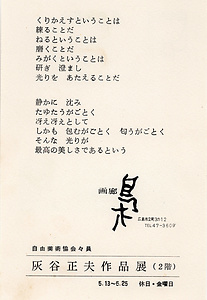 くりかえすということは
練ることだ
ねるということは
磨くことだ
みがくということは
研ぎ 澄まし
光りを あたえることだ
静かに 沈み
たゆたうがごとく
冴え冴えとして
しかも 包むがごとく 匂うがごとく
そんな 光りが
最高の美しさであるという
画廊
自由美術協会々員
灰谷正夫作品展(2階)
5.13～6.25 休日・金曜日